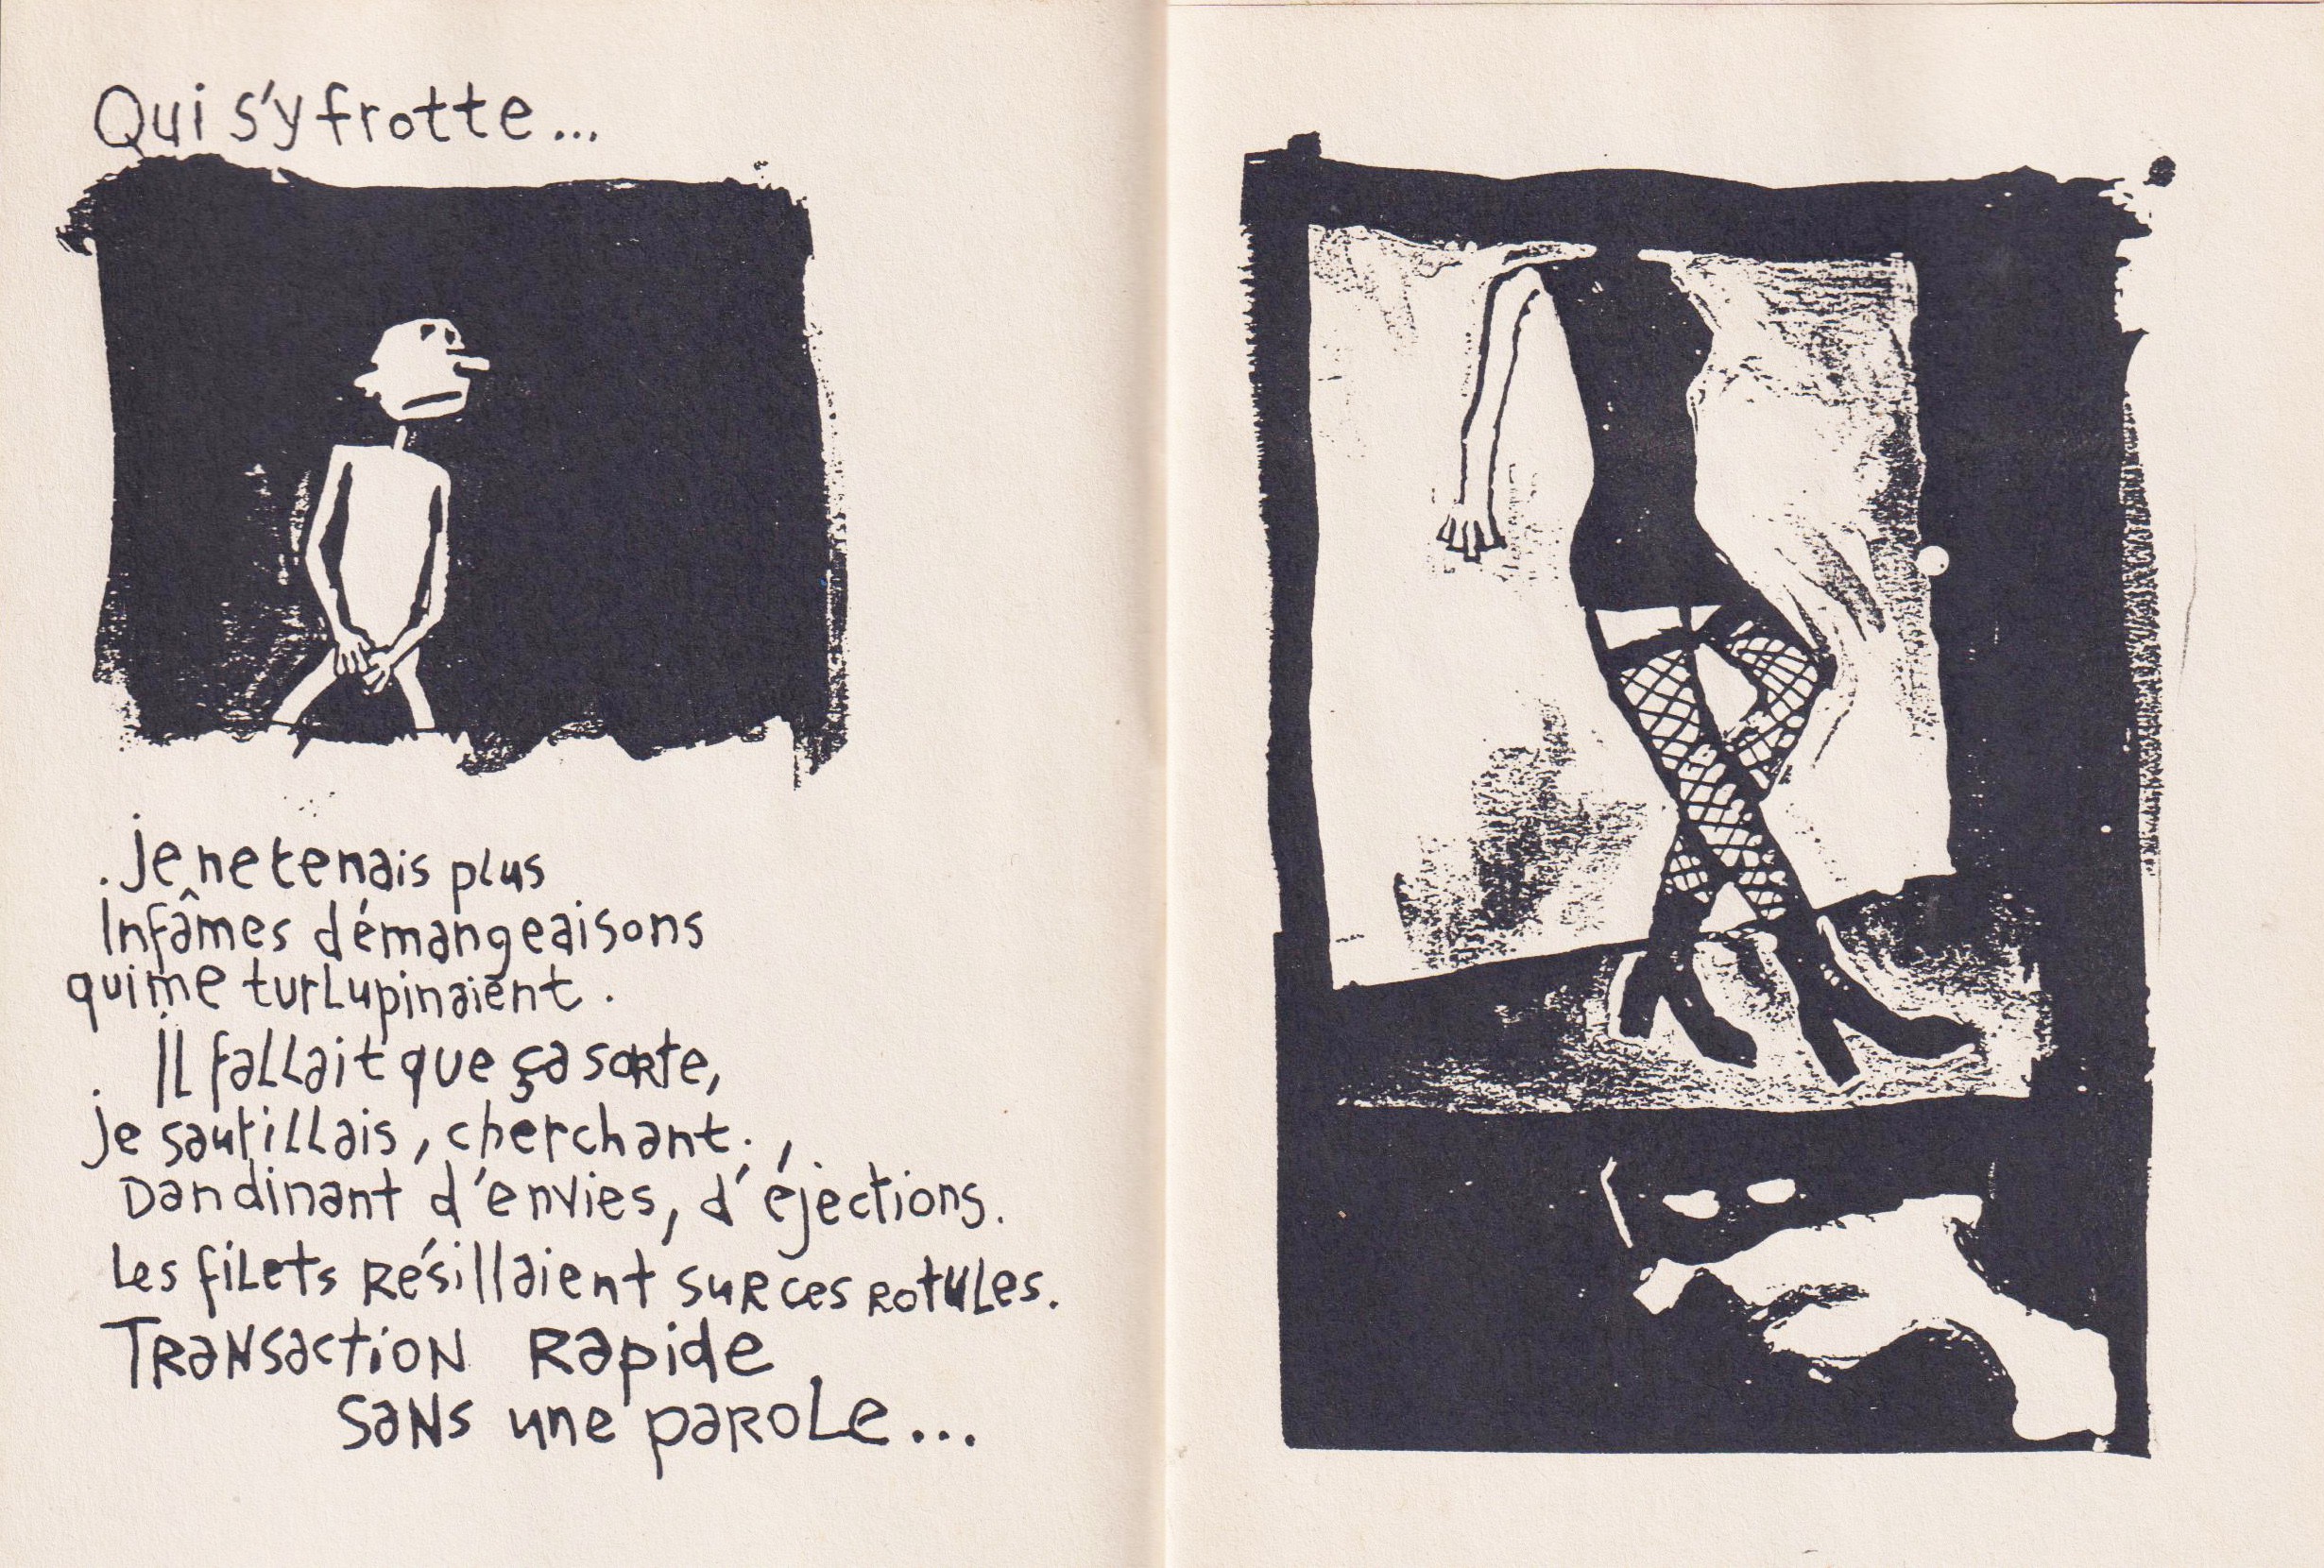 Qui s'y frotte...
. je ne tenais plus
Infâmes démangeaisons
qui me turlupinaient.
. Il fallait que ça sorte,
je sautillais, cherchant.,
Dandinant d'envies, d'éjections.
Les filets résillaient sur ces rotules.
Transaction rapide
sans une parole...